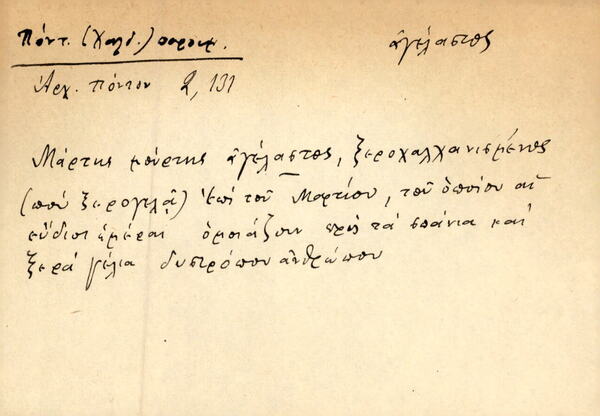 Πόντ. (Χαλδ.) παροιμ.
ἀγέλαστος
Ἀρχ. Πόντου 2, 131
Μάρτης μούρτης ἀγέλαστος, ξεροχαλχανισμένος
(που ξερογελᾷ) ἐπί τοῦ Μαρτίου, τοῦ ὁποίου αἱ
εὔδιοι ἡμέραι ὁμοιάζουν πρὸς τά σπάνια καί
ξερά γέλια δυστρόπου ἀνθρώπου